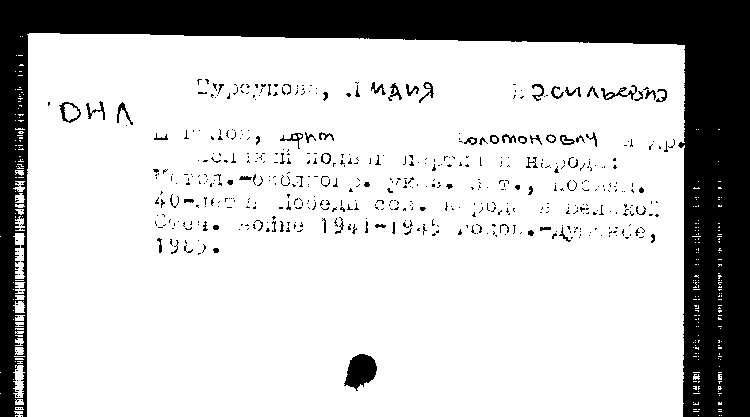 Турсунова, Лидия Васильевна
ОНЛ
и др.
Великий подвиг партии и народа:
Метод.-библиогр. указ. лит., посвящ.
40-летию Победы сов. народа в Великой
Отеч. войне 1941-1945 годов.-Душанбе,
1985.